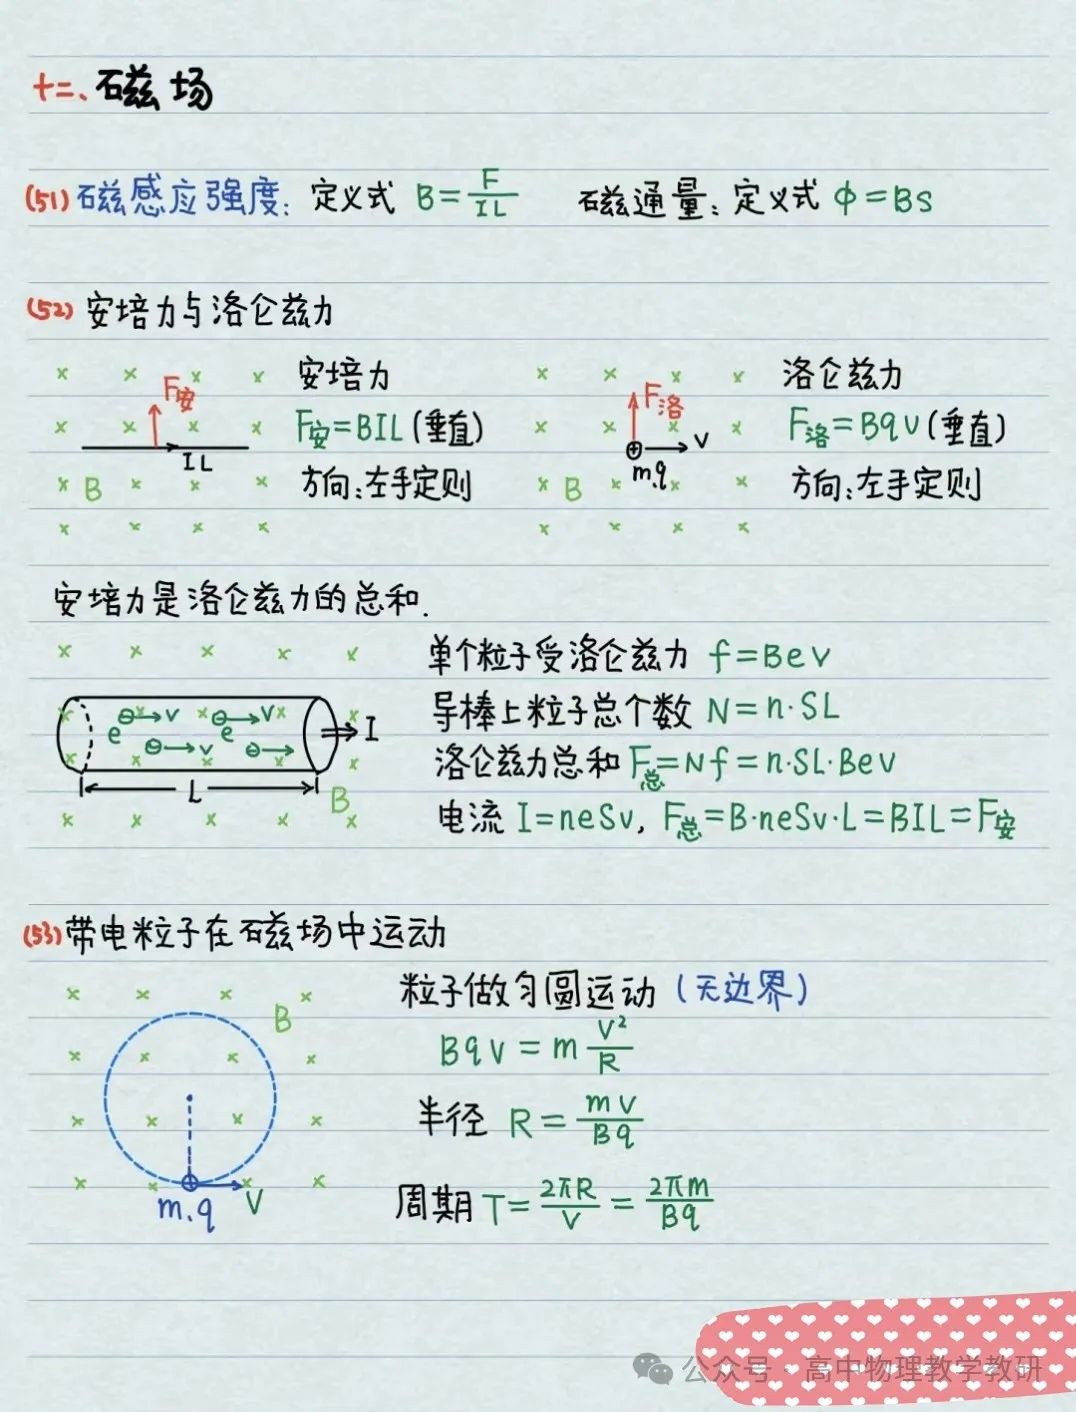 十二、磁场
(51) 磁感应强度: 定义式 B=F/IL 磁通量: 定义式 Φ=BS
(52) 安培力与洛仑兹力
F安
IL
B
安培力
F安=BIL(垂直)
方向:左手定则
F洛
V
m.q
B
洛仑兹力
F洛=BqV(垂直)
方向:左手定则
安培力是洛仑兹力的总和.
e V e V V
I
L
B
单个粒子受洛仑兹力 f=BeV
导棒上粒子总个数 N=n·SL
洛仑兹力总和 F总=Nf=n·SL·BeV
电流 I=neSv, F总=B·neSv·L=BIL=F安
(53) 带电粒子在磁场中运动
B
m.q V
粒子做匀圆运动 (无边界)
BqV=m V²/R
半径 R=mV/Bq
周期 T=2πR/V=2πm/Bq
公众号·高中物理教学教研